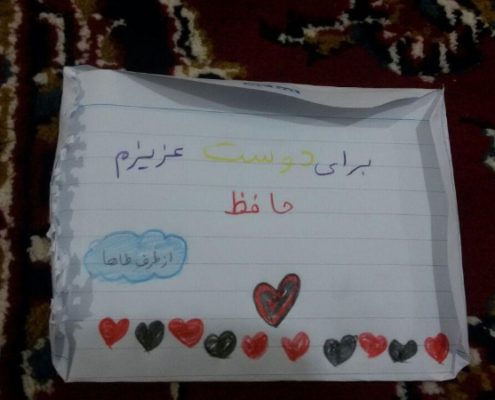 برای دوست عزیزم
حافظ
از طرف طاها